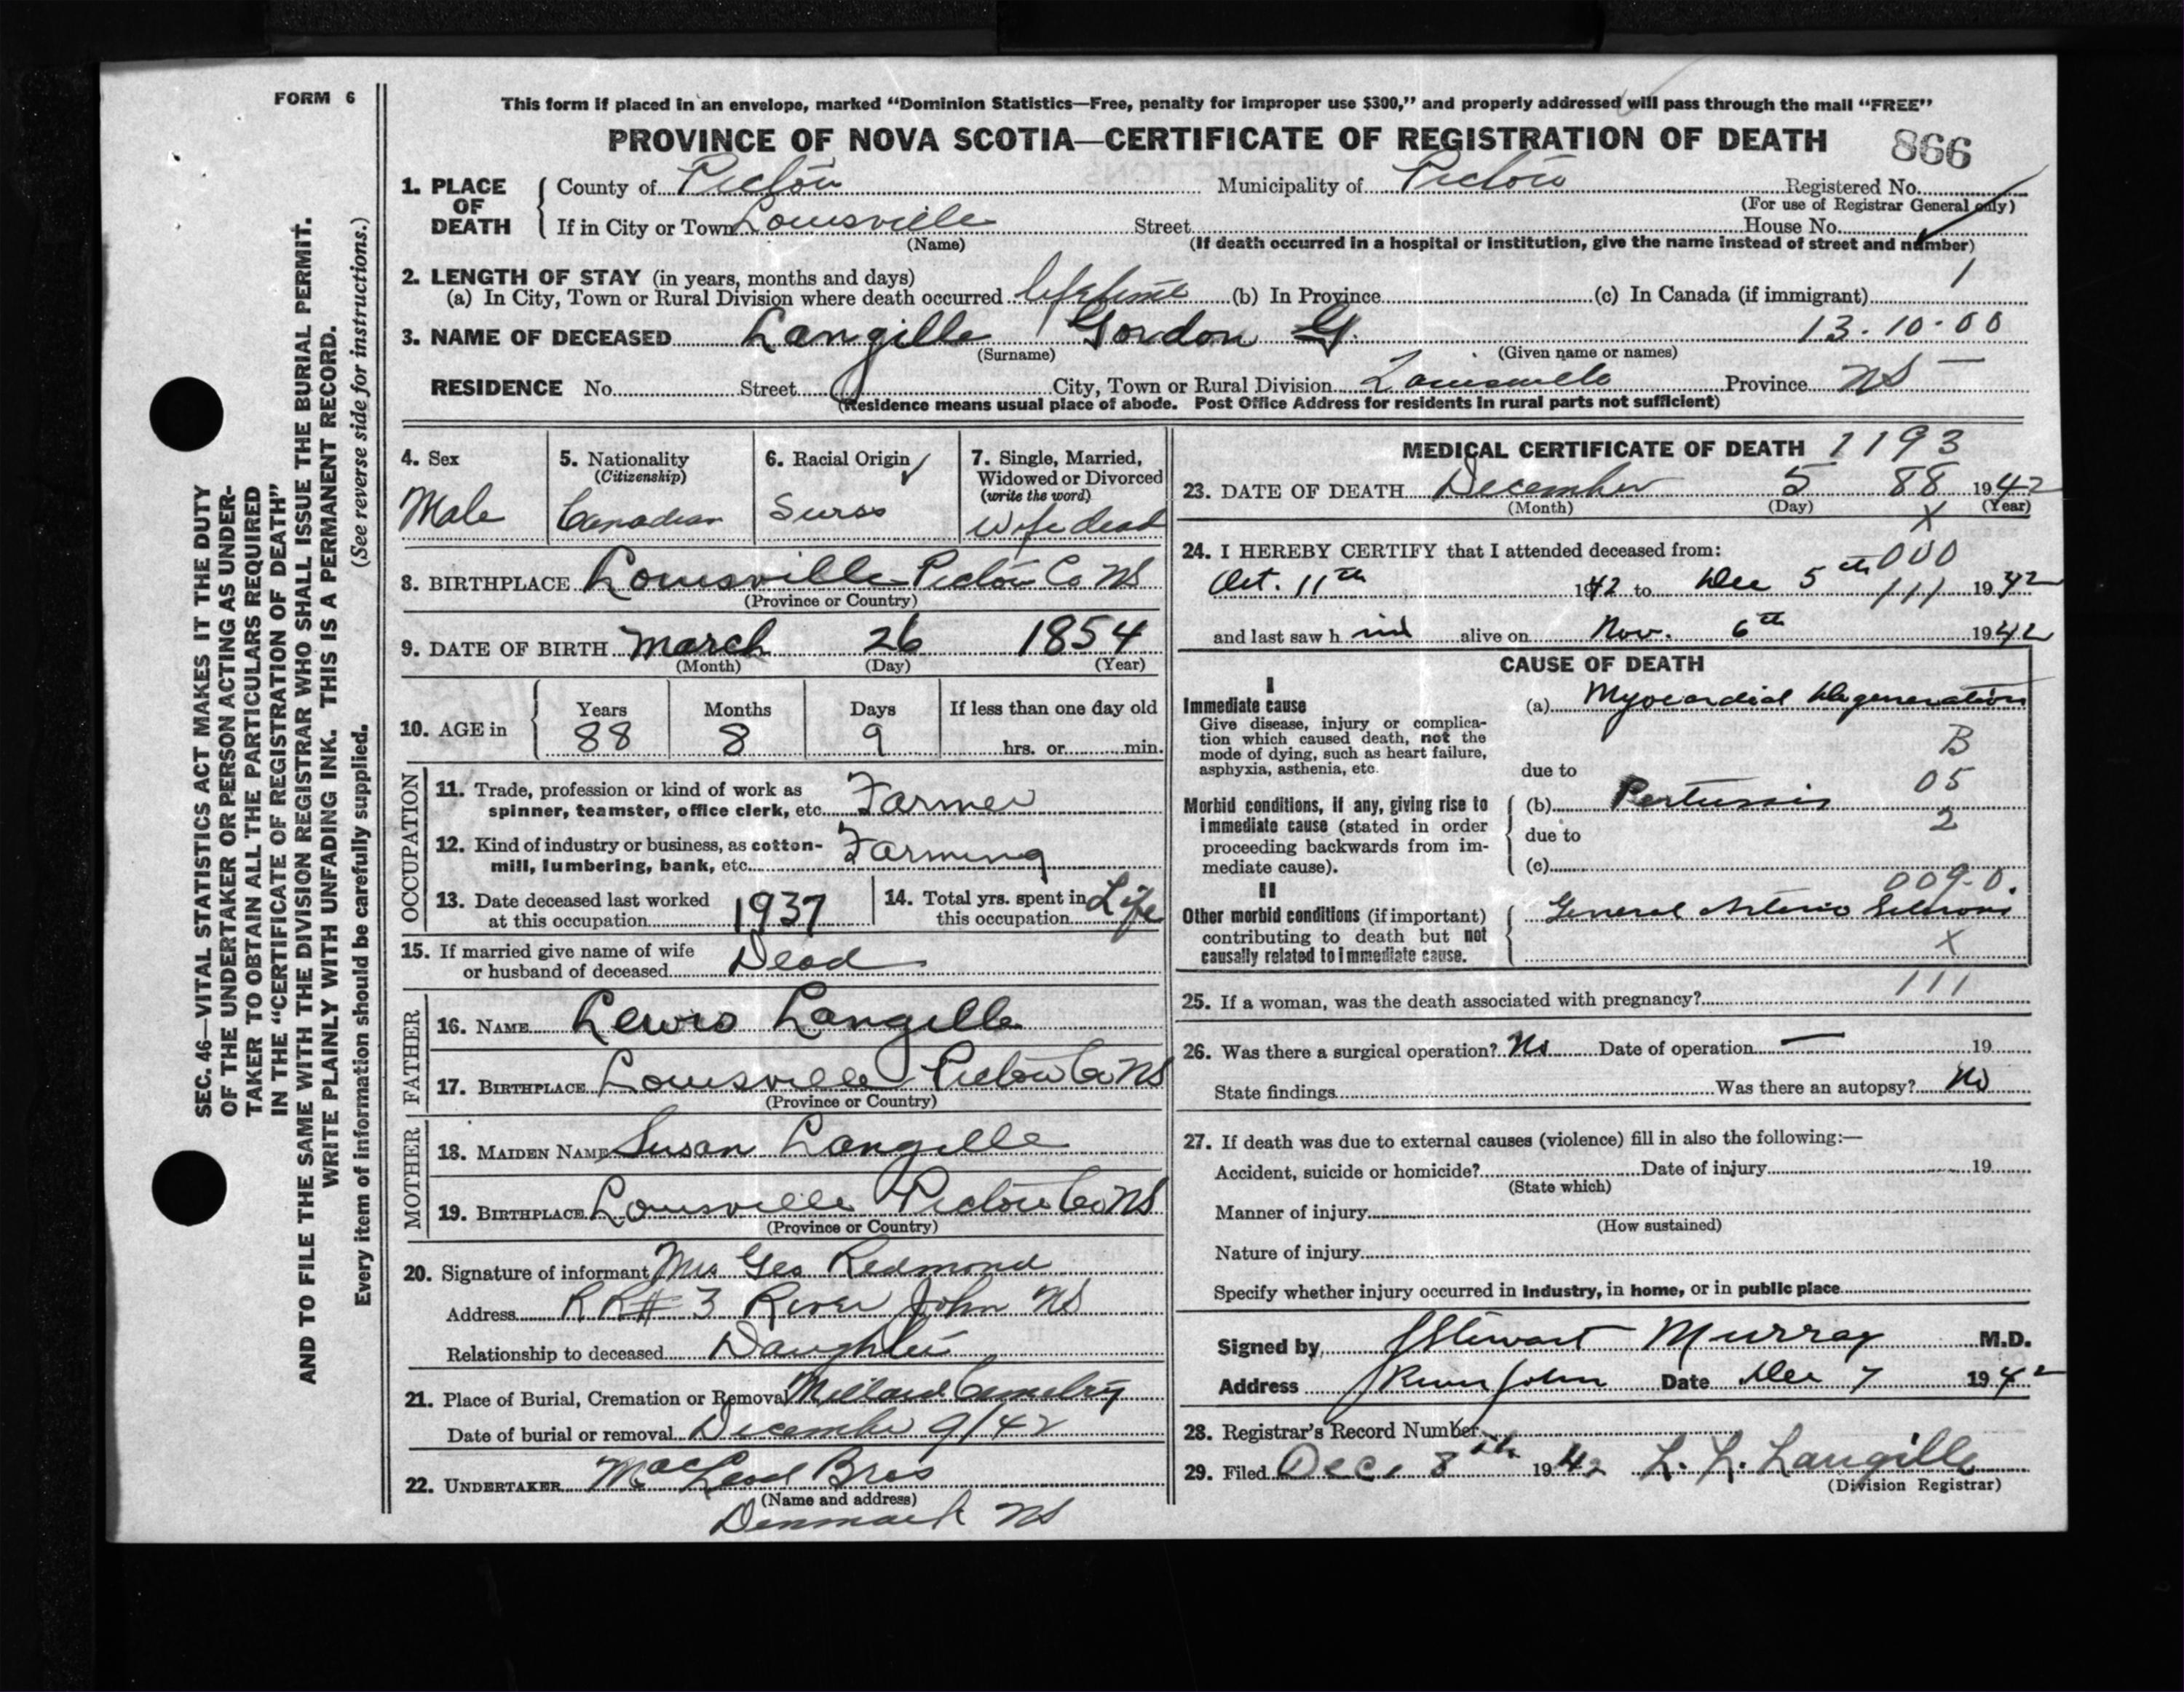 FORM 6
SEC. 46—VITAL STATISTICS ACT MAKES IT THE DUTY
OF THE UNDERTAKER OR PERSON ACTING AS UNDER-
TAKER TO OBTAIN ALL THE PARTICULARS REQUIRED
IN THE "CERTIFICATE OF REGISTRATION OF DEATH"
AND TO FILE THE SAME WITH THE DIVISION REGISTRAR WHO SHALL ISSUE THE BURIAL PERMIT.
WRITE PLAINLY WITH UNFADING INK. THIS IS A PERMANENT RECORD.
Every item of information should be carefully supplied. (See reverse side for instructions.)
This form if placed in an envelope, marked "Dominion Statistics—Free, penalty for improper use $300," and properly addressed will pass through the mail "FREE"
PROVINCE OF NOVA SCOTIA—CERTIFICATE OF REGISTRATION OF DEATH 866
1. PLACE OF DEATH County of Pictou Municipality of Pictou Registered No.
(For use of Registrar General only)
If in City or Town Louisville Street House No.
(Name) (If death occurred in a hospital or institution, give the name instead of street and number)
2. LENGTH OF STAY (in years, months and days) 1
(a) In City, Town or Rural Division where death occurred lifetime (b) In Province (c) In Canada (if immigrant)
3. NAME OF DECEASED Langille Gordon G. 13-10-00
(Surname) (Given name or names)
RESIDENCE No. Street City, Town or Rural Division Louisville Province NS —
(Residence means usual place of abode. Post Office Address for residents in rural parts not sufficient)
4. Sex
Male
5. Nationality
(Citizenship)
Canadian
6. Racial Origin
Swiss
7. Single, Married,
Widowed or Divorced
(write the word)
Wife dead
8. BIRTHPLACE Louisville Pictou Co NS
(Province or Country)
9. DATE OF BIRTH March 26 1854
(Month) (Day) (Year)
10. AGE in Years Months Days If less than one day old
88 8 9 hrs. or min.
OCCUPATION
11. Trade, profession or kind of work as
spinner, teamster, office clerk, etc. Farmer
12. Kind of industry or business, as cotton-
mill, lumbering, bank, etc. Farming
13. Date deceased last worked
at this occupation 1937
14. Total yrs. spent in
this occupation Life
15. If married give name of wife
or husband of deceased Dead
FATHER
16. NAME Lewis Langille
17. BIRTHPLACE Louisville Pictou Co NS
(Province or Country)
MOTHER
18. MAIDEN NAME Susan Langille
19. BIRTHPLACE Louisville Pictou Co NS
(Province or Country)
20. Signature of informant Mrs Geo Redmond
Address RR# 3 River John NS
Relationship to deceased Daughter
21. Place of Burial, Cremation or Removal Cemetry
Date of burial or removal December 9/42
22. UNDERTAKER MacLeod Bros
(Name and address)
Denmark NS
MEDICAL CERTIFICATE OF DEATH 1193
23. DATE OF DEATH December 5 88 1942
(Month) (Day) (Year)
X
24. I HEREBY CERTIFY that I attended deceased from:
000
Oct. 11th 1942 to Dec 5th 111 1942
and last saw h im alive on Nov. 6th 1942
CAUSE OF DEATH
I
Immediate cause
Give disease, injury or complica-
tion which caused death, not the
mode of dying, such as heart failure,
asphyxia, asthenia, etc.
(a) Myocardial degeneration
B
due to
05
Morbid conditions, if any, giving rise to
immediate cause (stated in order
proceeding backwards from im-
mediate cause).
(b) Pertussis
2
due to
(c)
009-0.
II
Other morbid conditions (if important)
contributing to death but not
causally related to immediate cause.
General Arterio Sclerosis
X
111
25. If a woman, was the death associated with pregnancy?
26. Was there a surgical operation? No Date of operation — 19
State findings Was there an autopsy? No
27. If death was due to external causes (violence) fill in also the following:—
Accident, suicide or homicide? Date of injury 19
(State which)
Manner of injury
(How sustained)
Nature of injury
Specify whether injury occurred in industry, in home, or in public place
Signed by J Stewart Murray M.D.
Address River John Date Dec 7 1942
28. Registrar's Record Number
29. Filed Dec. 8th 1942 L. L. Langille
(Division Registrar)